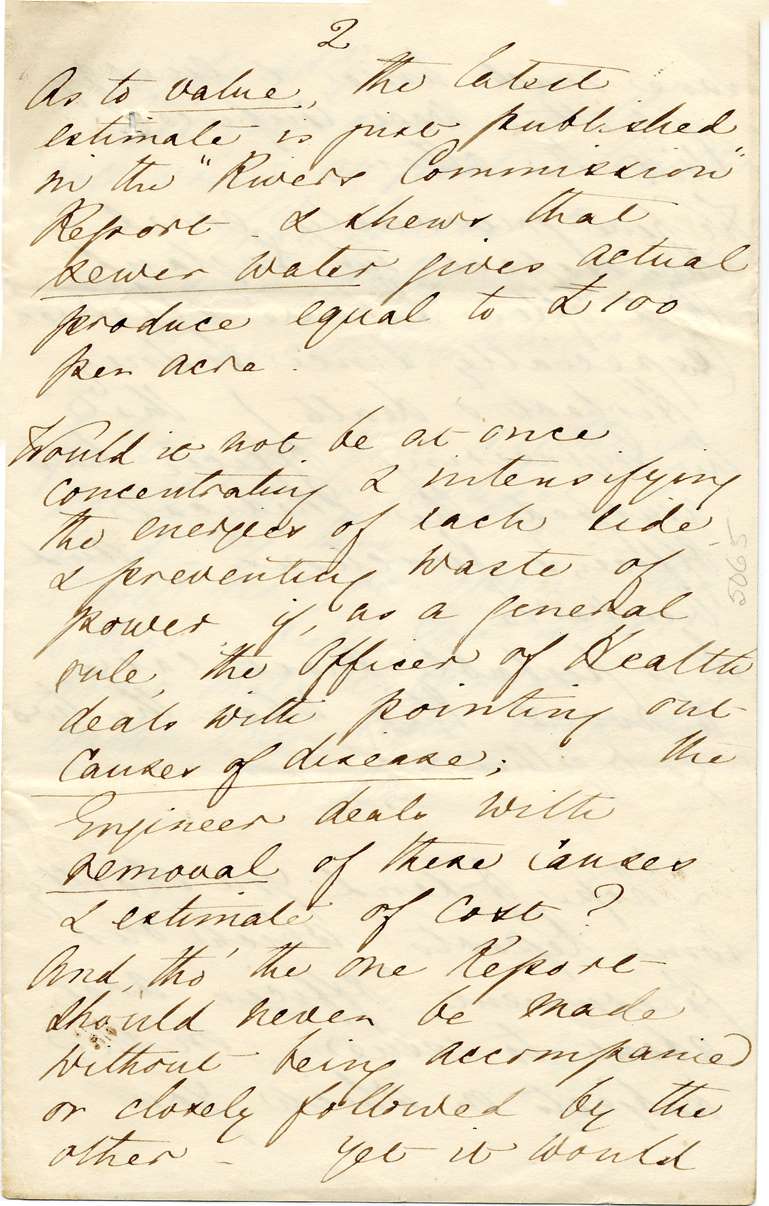 2
As to value, the latest
estimate is just published
in the "Rivers Commission"
Report - & shews that
sewer water gives actual
produce equal to £100
per acre.
Would it not be at once
concentrating & intensifying
the energies of each side
& preventing waste of
power, if, as a general
rule, the Officer of Health
deals with pointing out
causes of disease; the
Engineer deals with
removal of these causes
& estimate of cost?
And, tho' the one Report
should never be made
without being accompanied
or closely followed by the
other - yet it would
5065